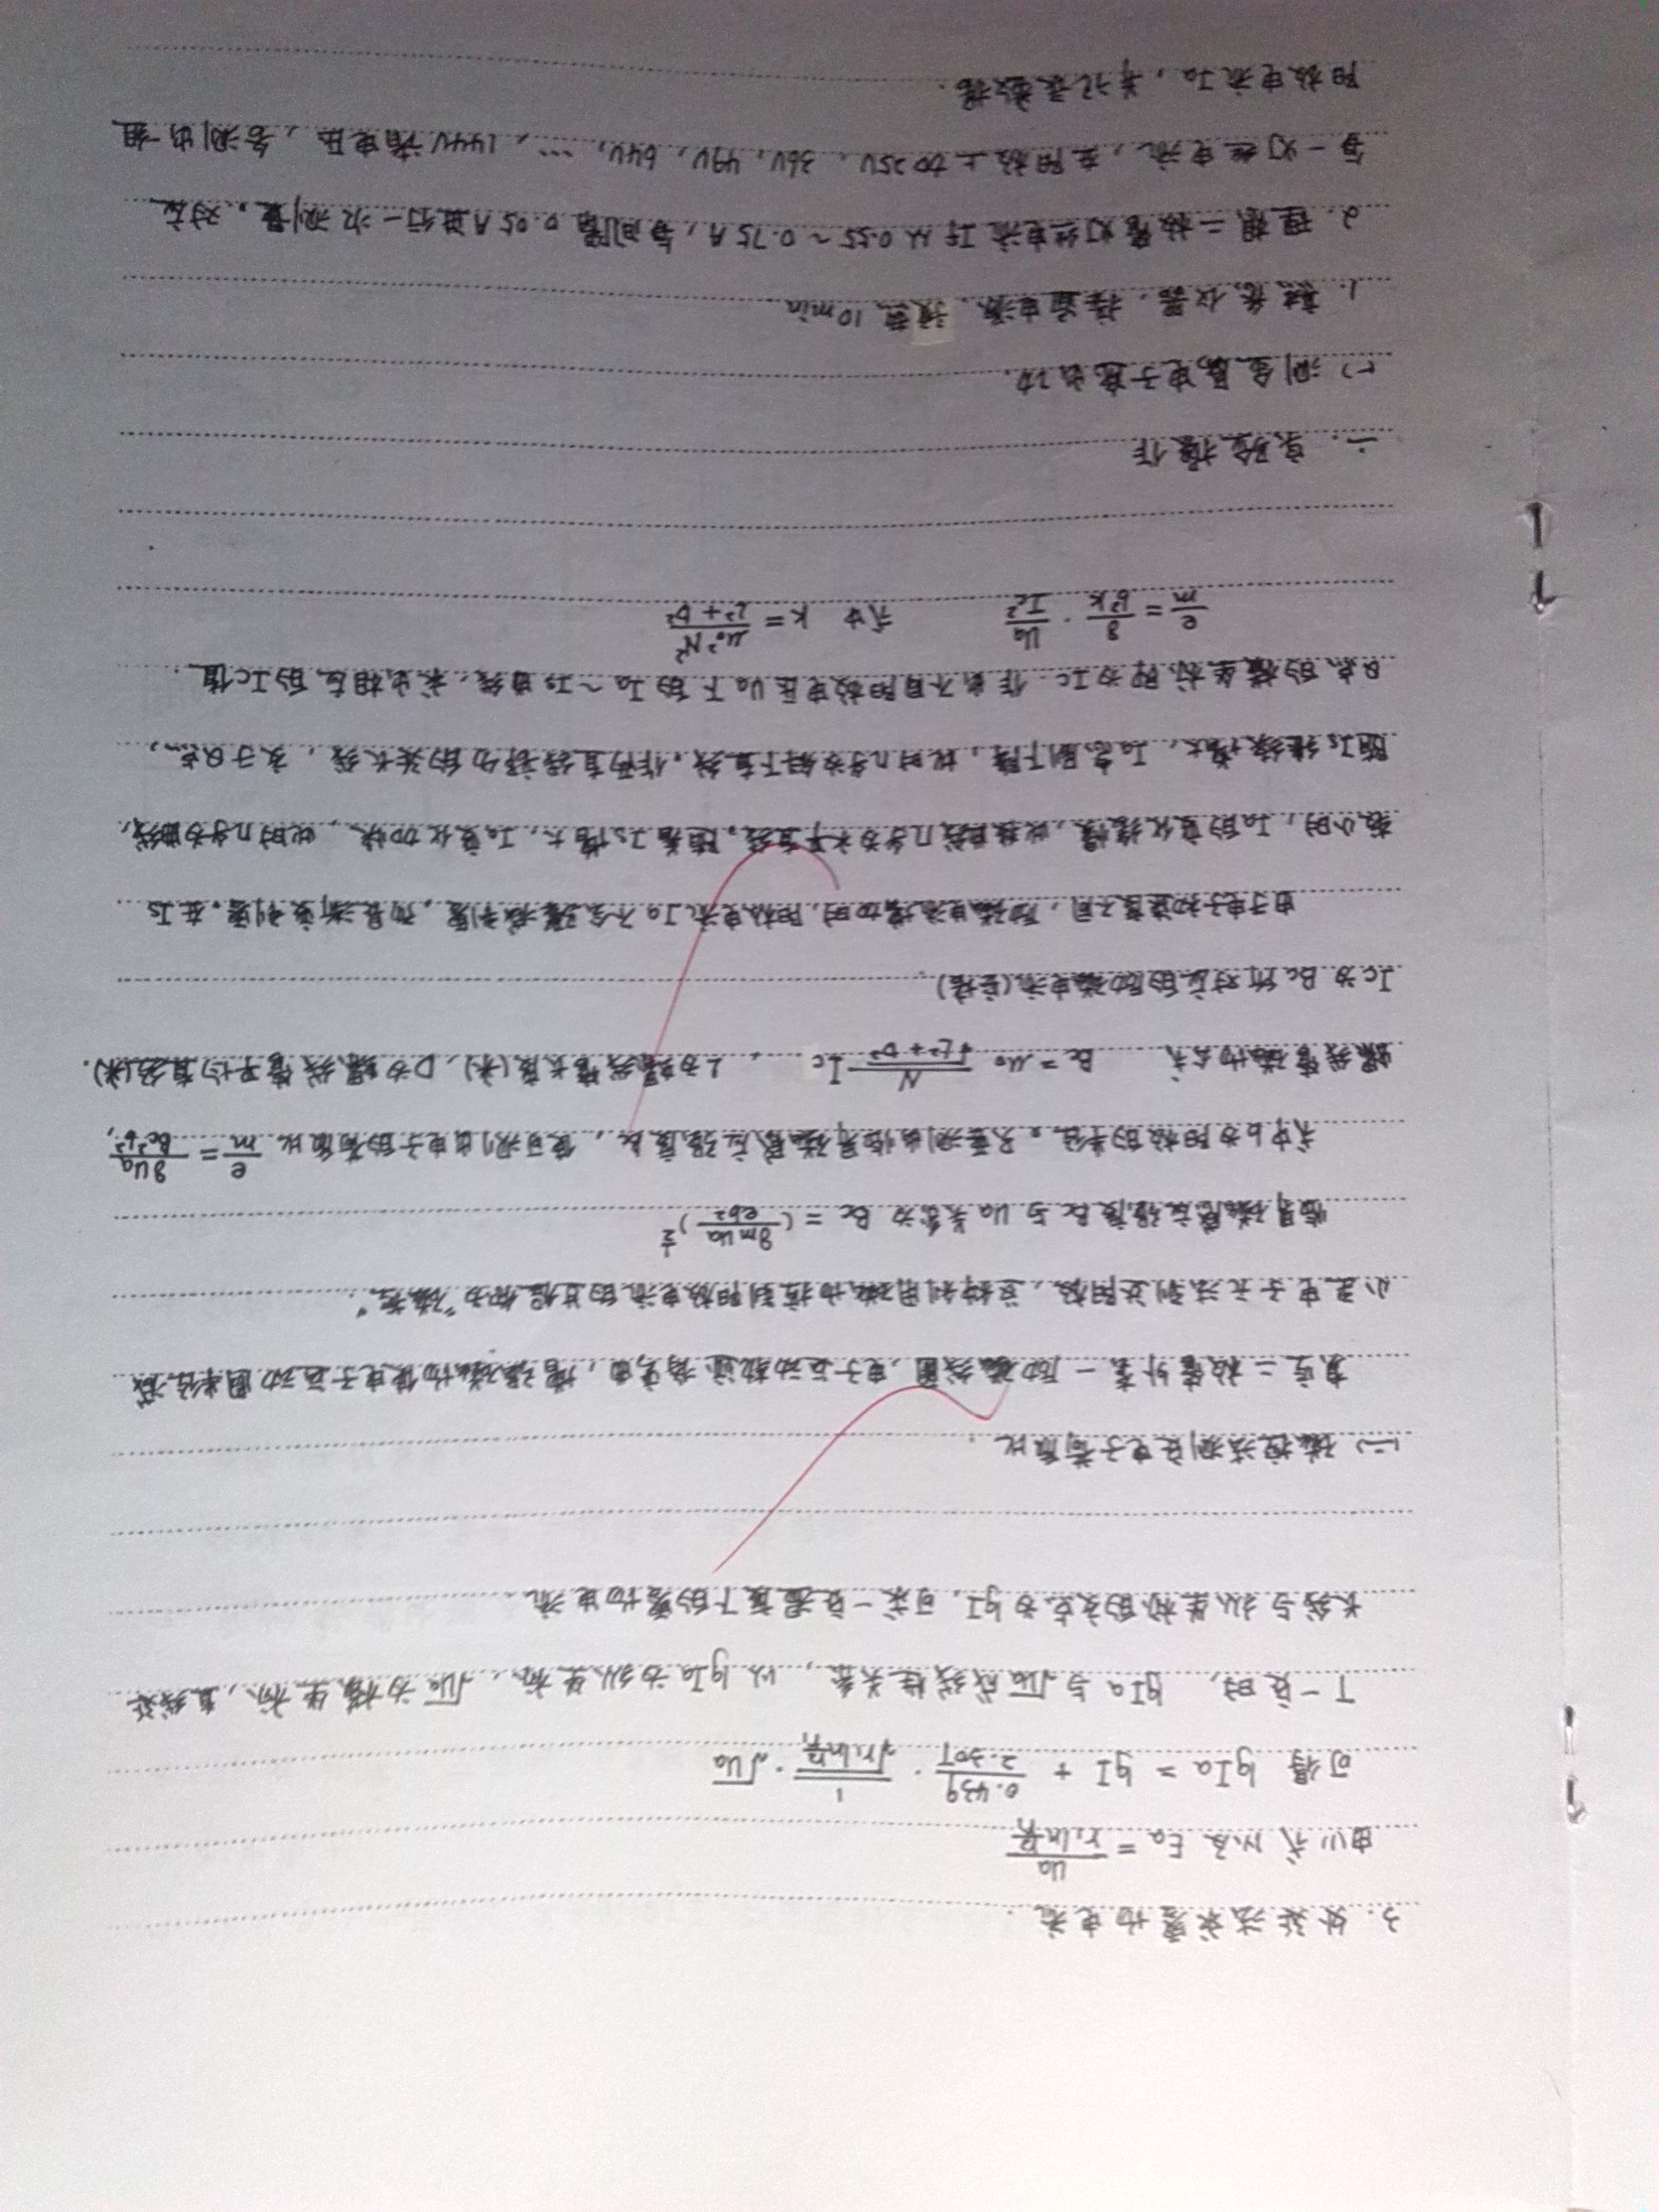 3. 外延法求零场电流.
由(1)式以及 Ea = Ua / (r₁ln(r₂/r₁))
可得 lgIa = lgI + 0.439/2.30T · 1/√(r₁ln(r₂/r₁)) · √Ua
T一定时, lgIa与√Ua成线性关系, 以lgIa为纵坐标, √Ua为横坐标, 直线延
长线与纵坐标的交点为lgI, 可求一定温度下的零场电流.
(二) 磁控法测定电子荷质比.
真空二极管外套一励磁线圈, 电子运动轨迹将弯曲, 增强磁场使电子运动圆半径减
小至电子无法到达阳极, 这种利用磁场控制阳极电流的过程称为"磁控".
临界磁感应强度Bc与Ua关系为 Bc = (8mUa/eb²)^½
式中b为阳极的半径。只要测出临界磁感应强度Bc, 便可测出电子的荷质比 e/m = 8Ua/Bc²b²,
螺线管磁场公式 Bc = μ₀ N/√(L²+D²) Ic , L为螺线管长度(米), D为螺线管平均直径(米).
Ic为Bc所对应的励磁电流(安培).
由于电子初速度不同, 励磁电流增加时, 阳极电流Ia不会骤有到零, 而是渐变到零. 在Is
较小时, Ia的变化缓慢, 此段几乎为水平直线. 随着Is增大, Ia变化加快, 此时几乎为曲线,
随Is继续增大, Ia急剧下降, 此时几乎为斜下直线. 作两直线部分的延长线, 交于Q点,
Q点的横坐标即为Ic. 作出不同阳极电压Ua下的Ia~Is曲线, 求出相应的Ic值.
e/m = 8/b²k · Ua/Ic² 式中 k = μ₀²N²/(L²+D²)
二. 实验操作
(一) 测金属电子逸出功.
1. 熟悉仪器, 接通电源, 预热10min.
2. 理想二极管灯丝电流If从0.55~0.75A, 每间隔0.05A进行一次测量. 对应
每一灯丝电流, 在阳极上加25V, 36V, 49V, 64V, …, 144V诸电压, 各测出一组
阳极电流Ia, 并记录数据.